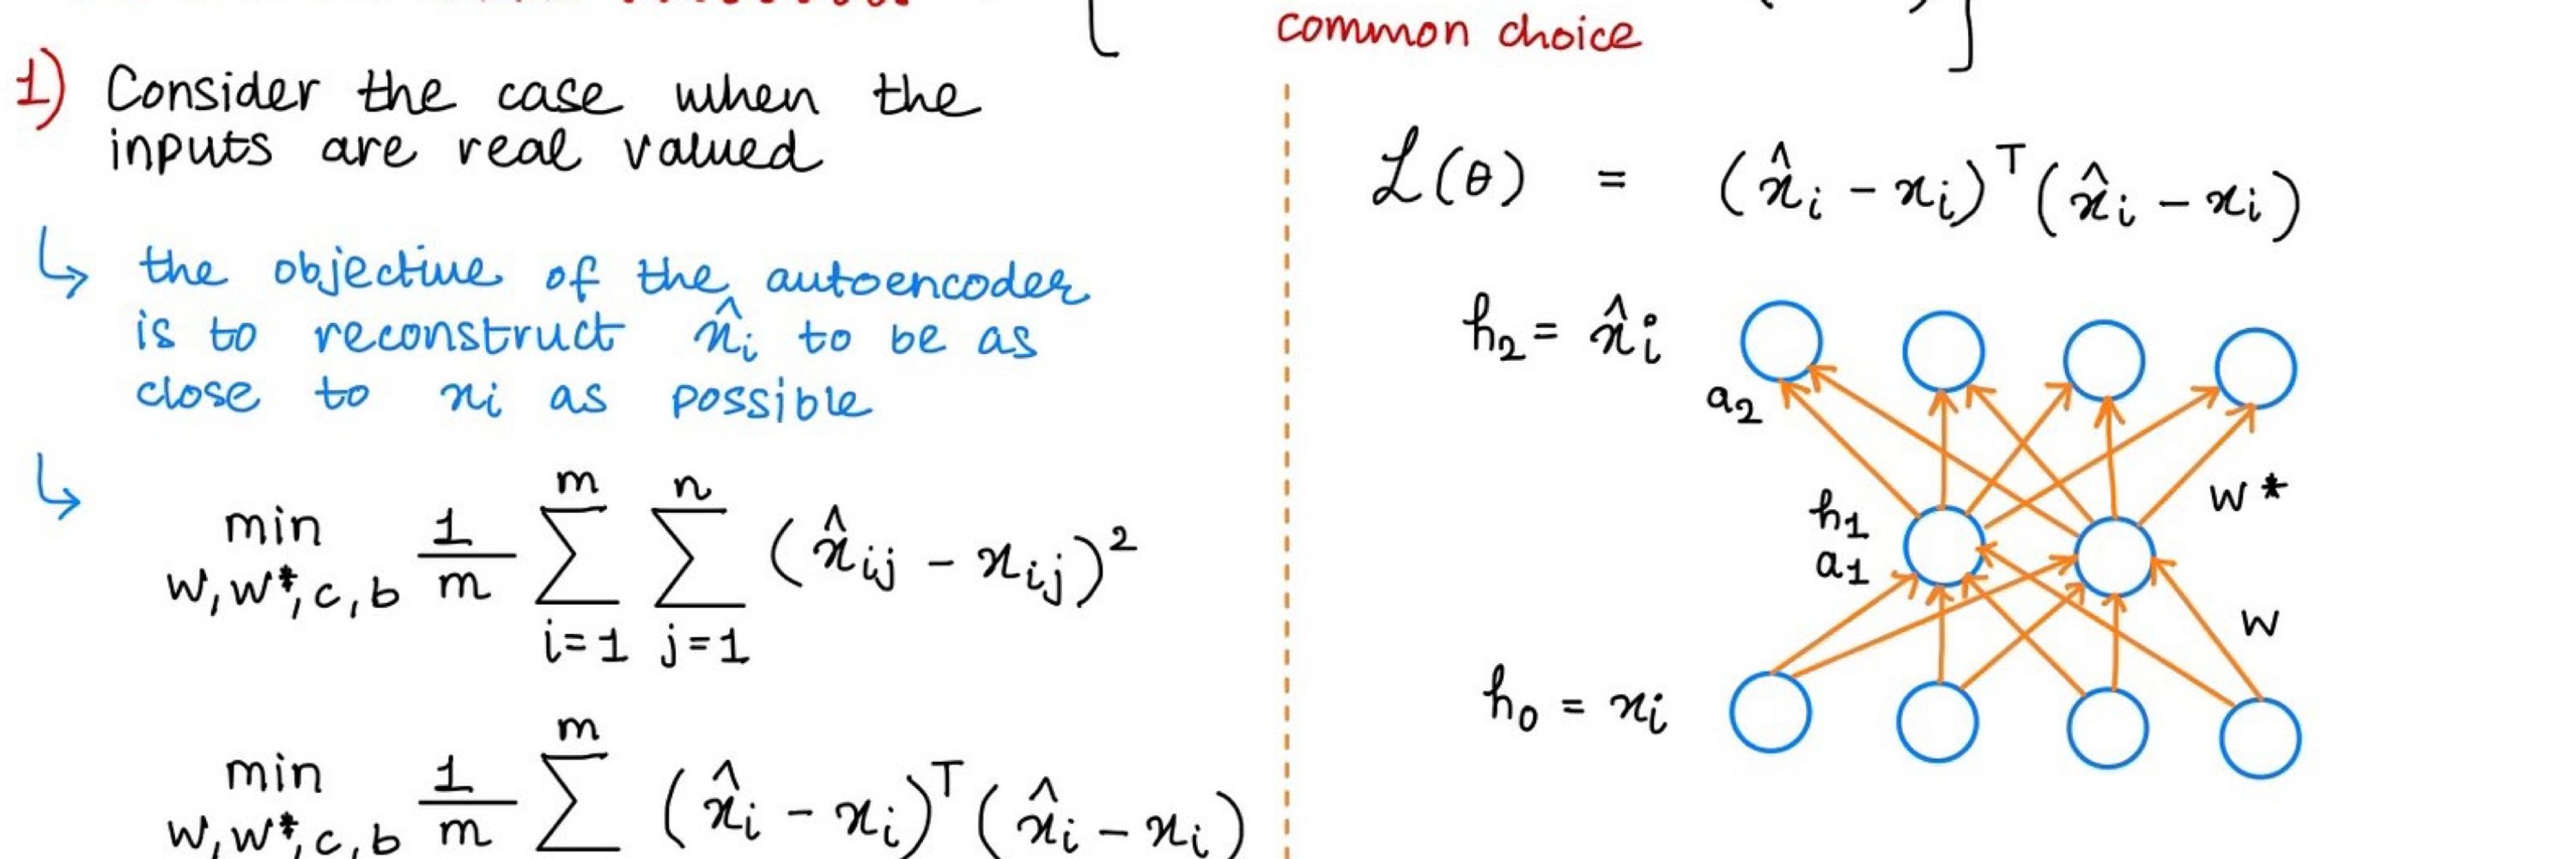 common choice
1) Consider the case when the
inputs are real valued
↳ the objective of the autoencoder
is to reconstruct x̂ᵢ to be as
close to xᵢ as possible
↳ min 1/m m∑i=1 n∑j=1 (x̂ᵢⱼ - xᵢⱼ)²
w, w*, c, b
min 1/m m∑ (x̂ᵢ - xᵢ)ᵀ (x̂ᵢ - xᵢ)
w, w*, c, b
ℒ(θ) = (x̂ᵢ - xᵢ)ᵀ (x̂ᵢ - xᵢ)
h₂ = x̂ᵢ
a₂
w*
h₁
a₁
w
h₀ = xᵢ